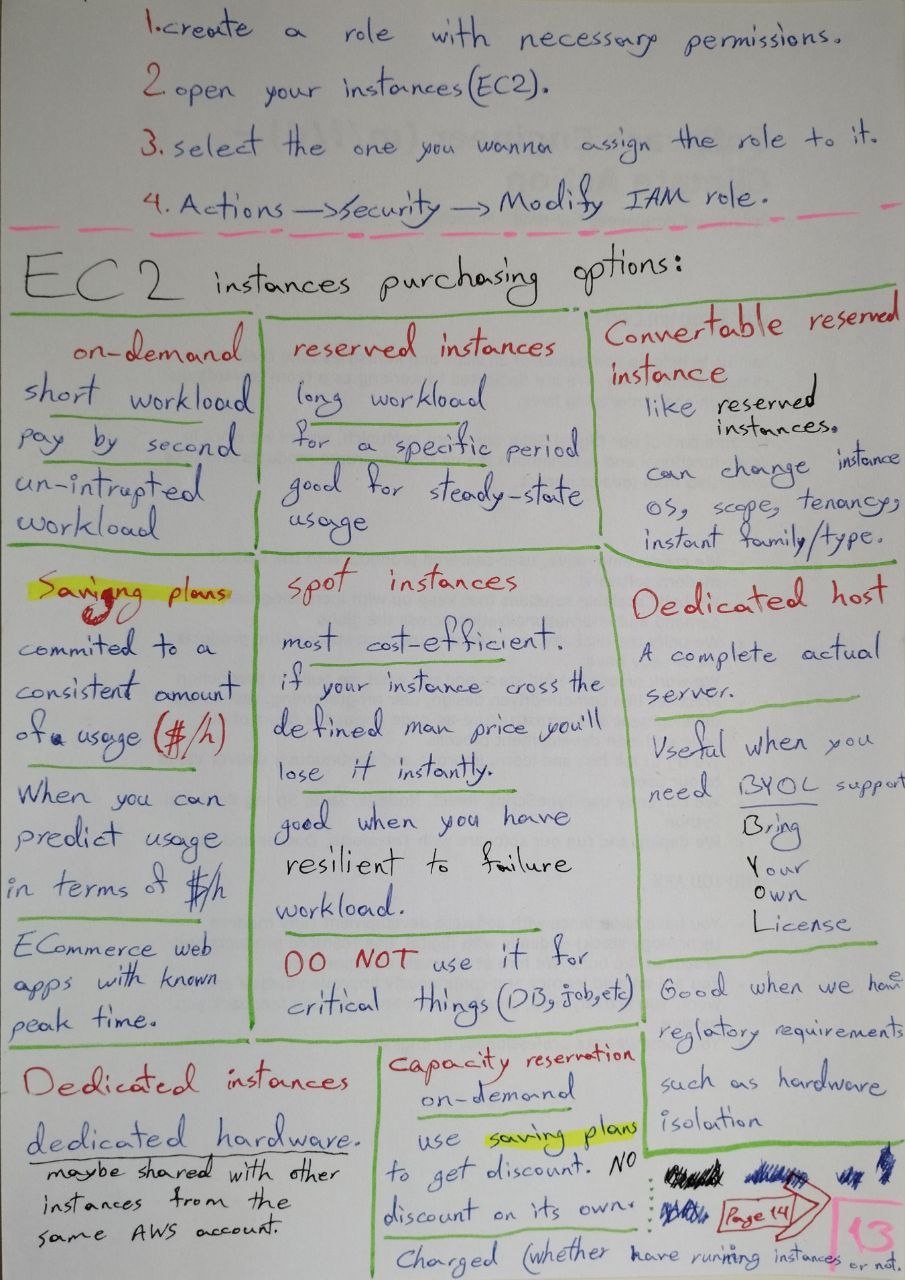 1. create a role with necessary permissions.
2. open your instances (EC2).
3. select the one you wanna assign the role to it.
4. Actions → Security → Modify IAM role.
EC2 instances purchasing options:
on-demand
short workload
pay by second
un-intrupted
workload
reserved instances
long workload
for a specific period
good for steady-state
usage
Convertable reserved
instance
like reserved
instances.
can change instance
OS, scope, tenancy,
instant family/type.
Saving plans
commited to a
consistent amount
of usage ($/h)
When you can
predict usage
in terms of $/h
ECommerce web
apps with known
peak time.
spot instances
most cost-efficient.
if your instance cross the
defined man price you'll
lose it instantly.
good when you have
resilient to failure
workload.
DO NOT use it for
critical things (DB, job, etc)
Dedicated host
A complete actual
server.
Useful when you
need BYOL support
Bring
Your
Own
License
Good when we have
reglatory requirements
such as hardware
isolation
Dedicated instances
dedicated hardware.
maybe shared with other
instances from the
same AWS account.
capacity reservation
on-demand
use saving plans
to get discount. NO
discount on its own.
Charged (whether have running instances or not.
Page 14
13